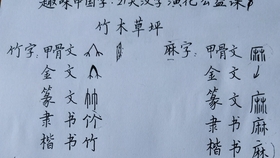 趣味中国字：21天汉字演化公益课
竹木草坪
竹字：甲骨文 麻字：甲骨文
金文 金文
篆文 篆文
隶书竹 隶书麻
楷书竹 楷书麻